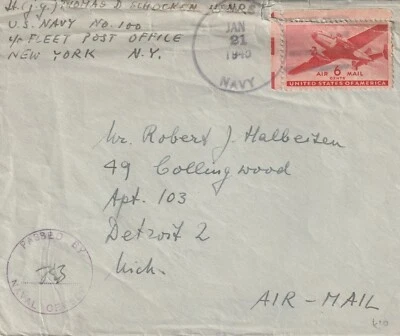 Lt. (j.g.) THOMAS D SCHOCKEN
U.S NAVY NO. 100
c/o FLEET POST OFFICE
NEW YORK N.Y.
JAN
21
NAVY
AIR 6 MAIL
CENTS
UNITED STATES OF AMERICA
Mr. Robert J. Halbeisen
49 Collingwood
Apt. 103
Detroit 2
Mich.
AIR-MAIL
PASSED BY
NAVAL